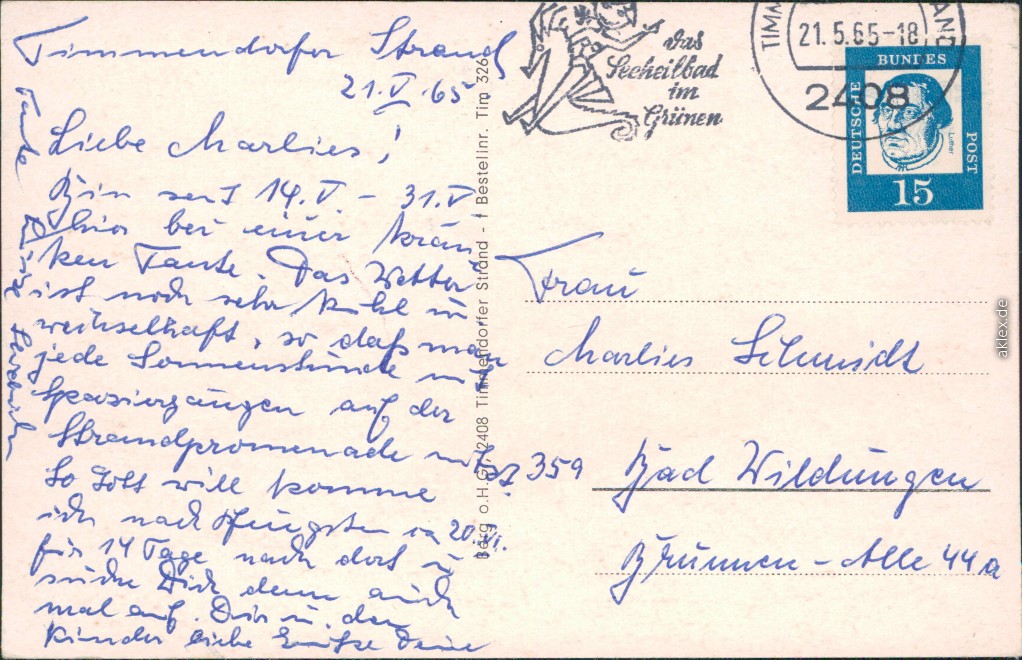 Timmendorfer Strand
21.V.65
Liebe Marlies!
Bin seit 14.V. – 31.V
hier bei einer kran-
ken Tante. Das Wetter
ist noch sehr kühl u
wechselhaft, so daß man
jede Sonnenstunde mit
Spaziergängen auf der
Strandpromenade nützt
So Gott will komme
ich nach Pfingsten ca 20.VI.
für 14 Tage nach dort u
suche Dich dann auch
mal auf. Dir u. den
Kinder liebe Grüße Deine
Tante
Berg o.H.G. 2408 Timmendorfer Strand - Bestellnr. Tim 326
das
Seeheilbad
im
Grünen
21.5.65-18
2408
DEUTSCHE
BUNDES
POST
Luther
15
Frau
Marlies Schmidt
359 Bad Wildungen
Brunnen-Alle 44a
aklex.de